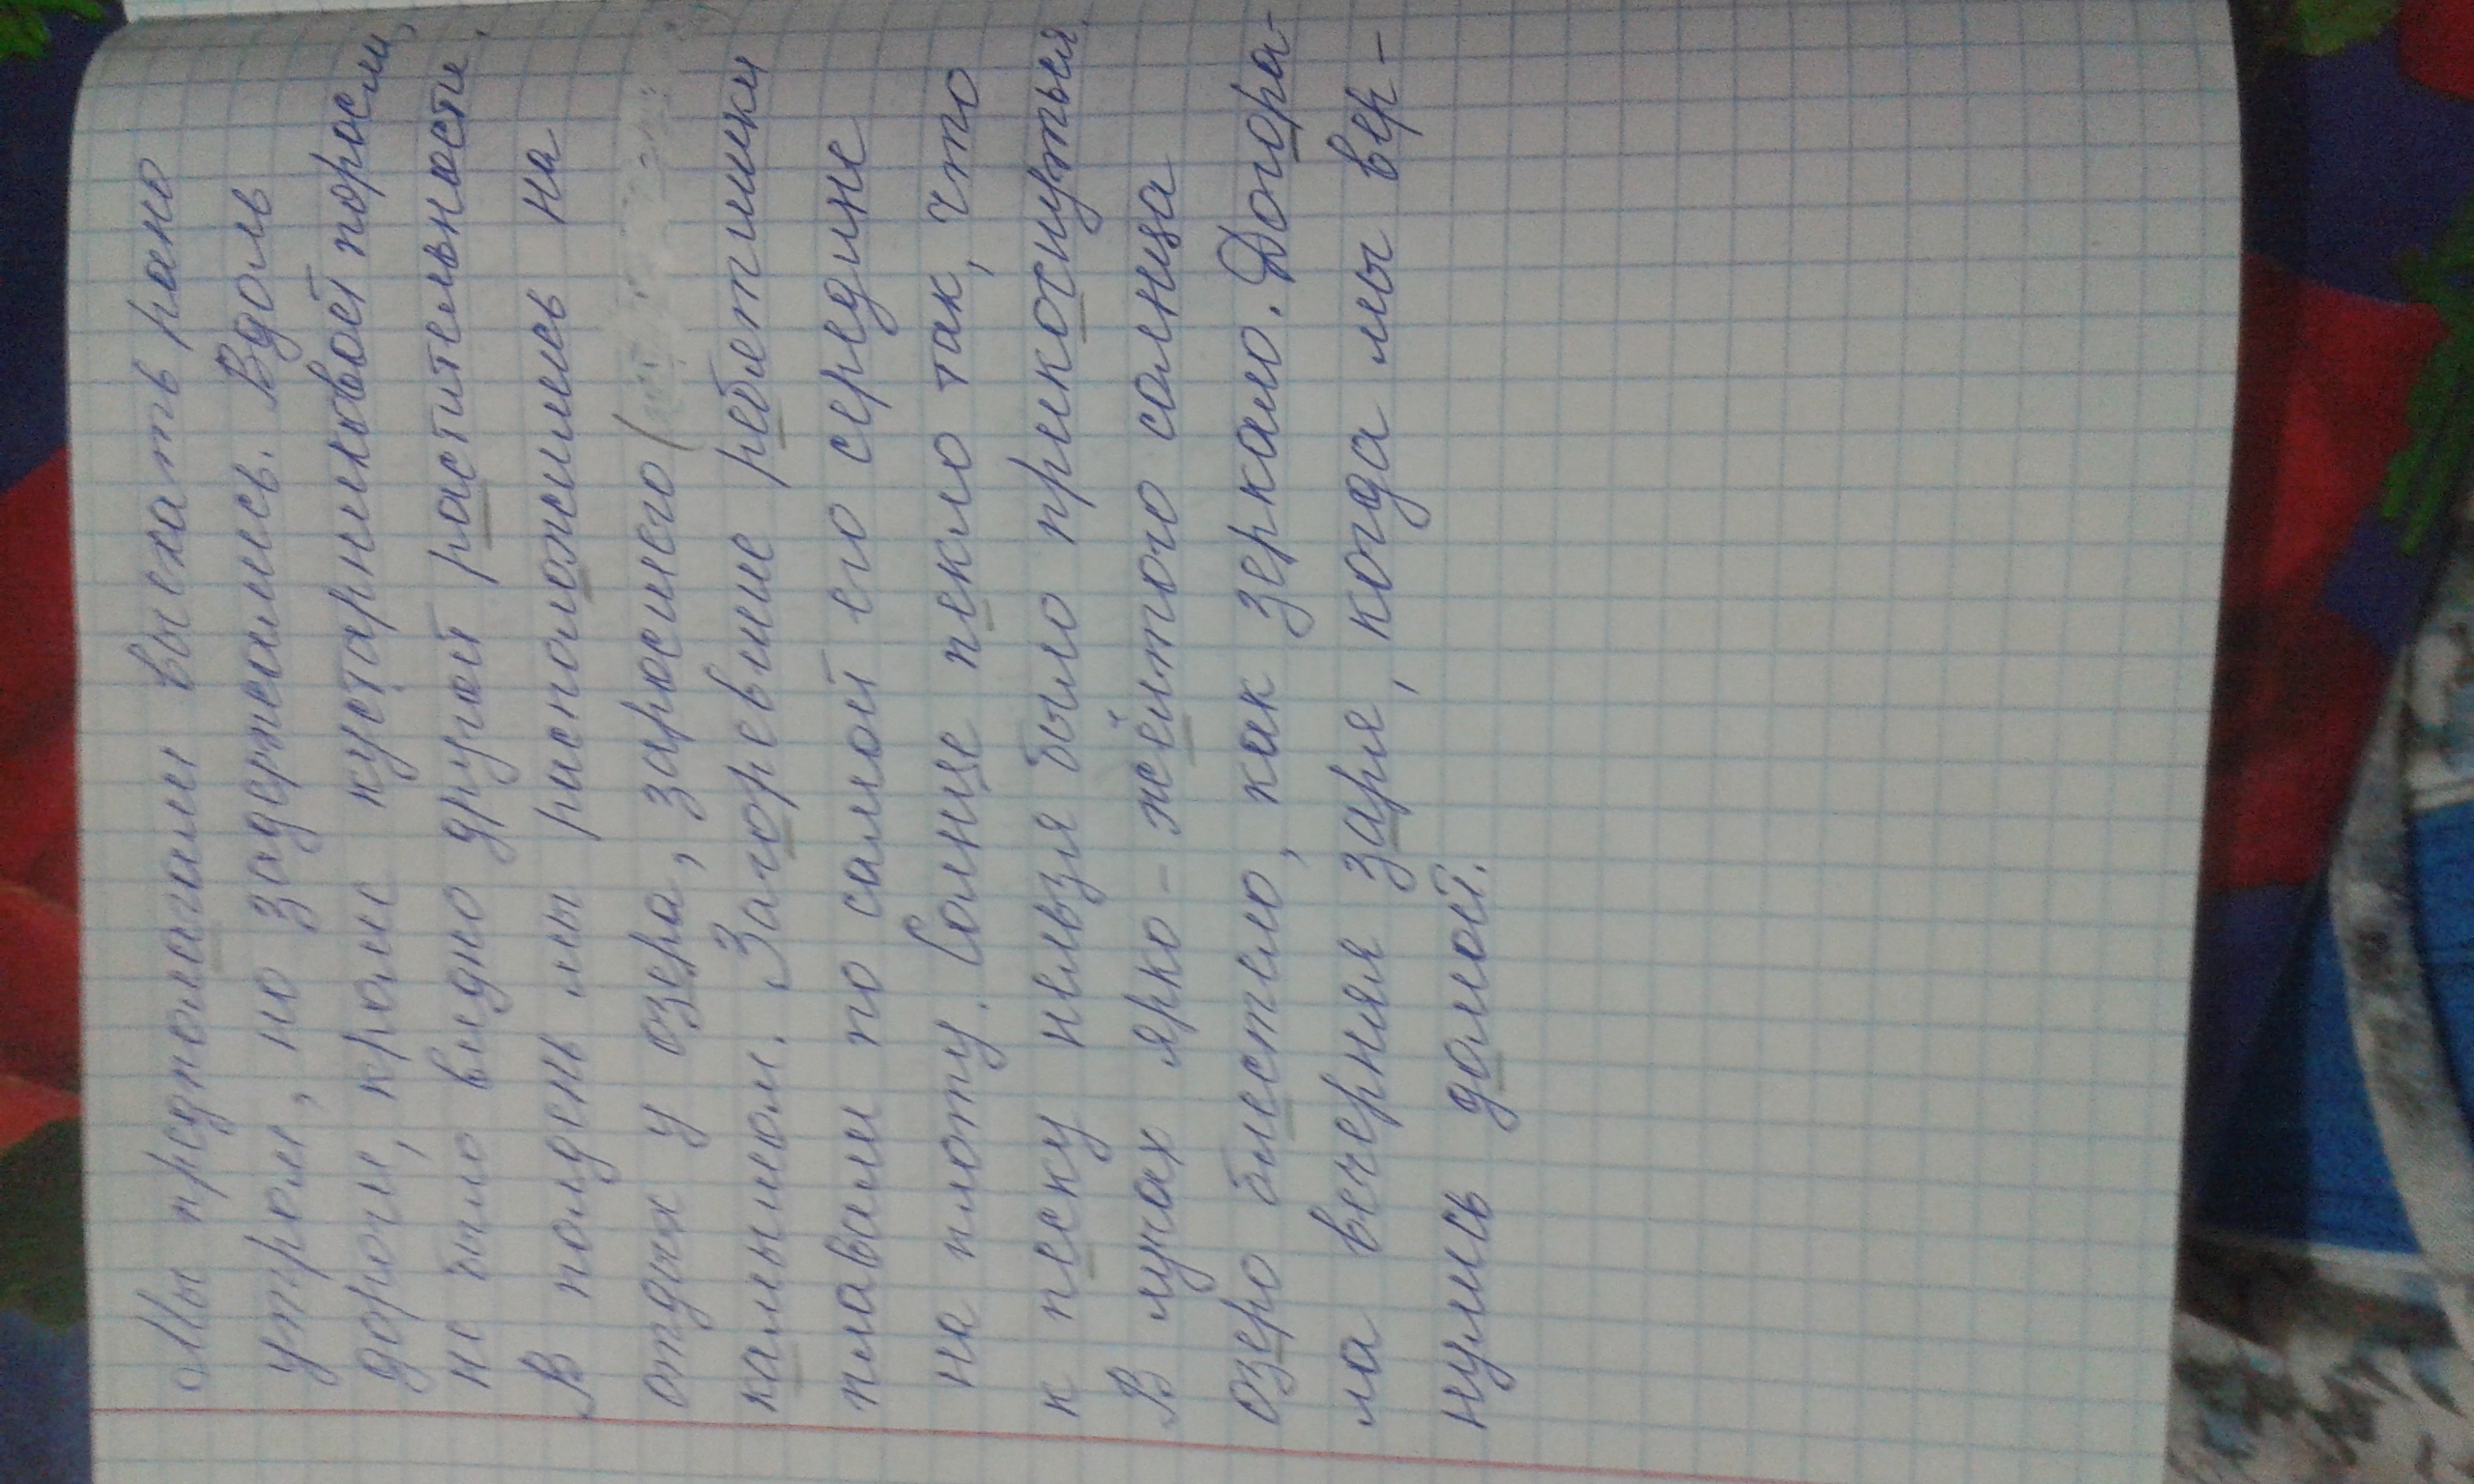 Мы предполагали выехать рано
утром, но задержались. Вдоль
дороги, кроме кустарниковой поросли,
не было видно другой растительности.
В полдень мы расположились на
отдых у озера, заросшего (
камышом. Загоревшие ребятишки
плавали по самой его середине
на плоту. Солнце пекло так, что
к песку нельзя было прикоснуться.
В лучах ярко-жёлтого солнца
озеро блестело, как зеркало. Догора-
ла вечерняя заря, когда мы вер-
нулись домой.